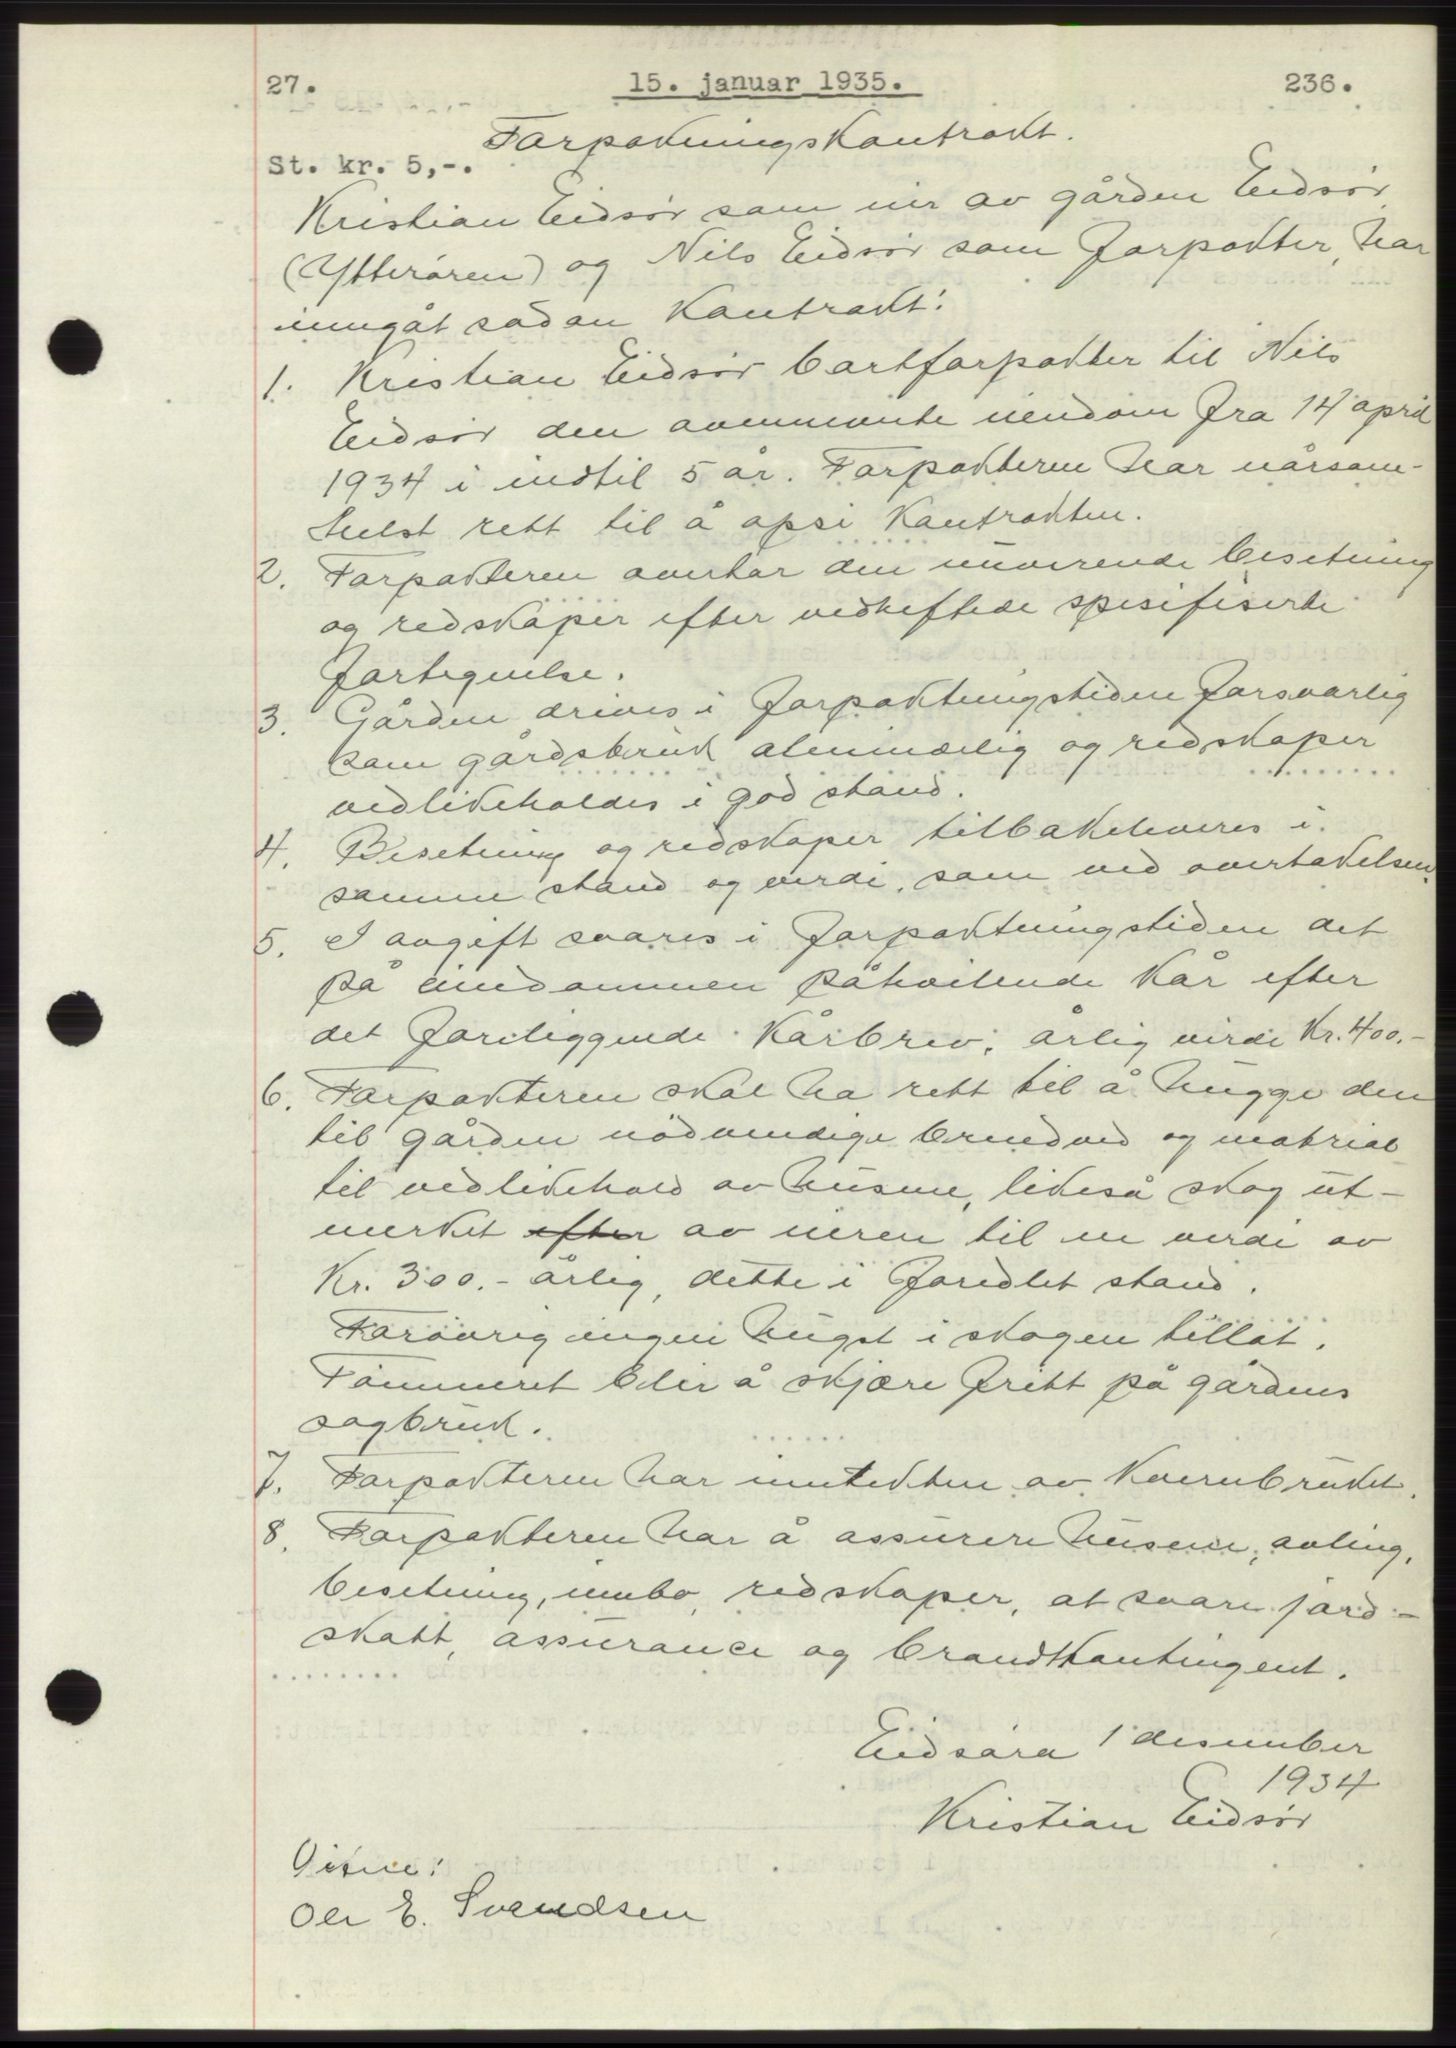 27. 15. januar 1935. 236.
Forpaktningskontrakt.
St. kr. 5,-.
Kristian Eidsør som eier av gården Eidsør
(Ytterøren) og Nils Eidsør som forpakter, har
inngåt sådan kontrakt:
1. Kristian Eidsør bortforpakter til Nils
Eidsør den ovennevnte eiendom fra 14 april
1934 i indtil 5 år. Forpakteren har nårsom-
helst rett til å opsi kontrakten.
2. Forpakteren overtar den nuverende besetning
og redskaper efter vedheftede spesifiserte
fortegnelse.
3. Gården drives i forpaktningstiden forsvarlig
som gårdsbruk almindelig og redskaper
vedlikeholdes i god stand.
4. Besetning og redskaper tilbakeleveres i
samme stand og verdi, som ved overtakelsen.
5. I avgift svares i forpaktningstiden det
på eiendommen påhvilende kår efter
det foreliggende kårbrev, årlig verdi Kr. 400.-
6. Forpakteren skal ha rett til å hugge den
til gården nödvendige brendved og matrial
til vedlikehold av husene, likeså skog ut-
merket efter av eieren til en verdi av
Kr. 300.- årlig, dette i foredlet stand.
Forövrig ingen hugst i skogen tillåt.
Tömmeret blir å skjære fritt på gårdens
sagbruk.
7. Forpakteren har inntekten av kvernbruket.
8. Forpakteren har å assurere husene, avling,
besetning, innbo, redskaper, at svare jord-
skatt, assurance og brandkontingent.
Eidsøra 1 desember
1934
Kristian Eidsør
Vitne:
Ole E. Svendsen